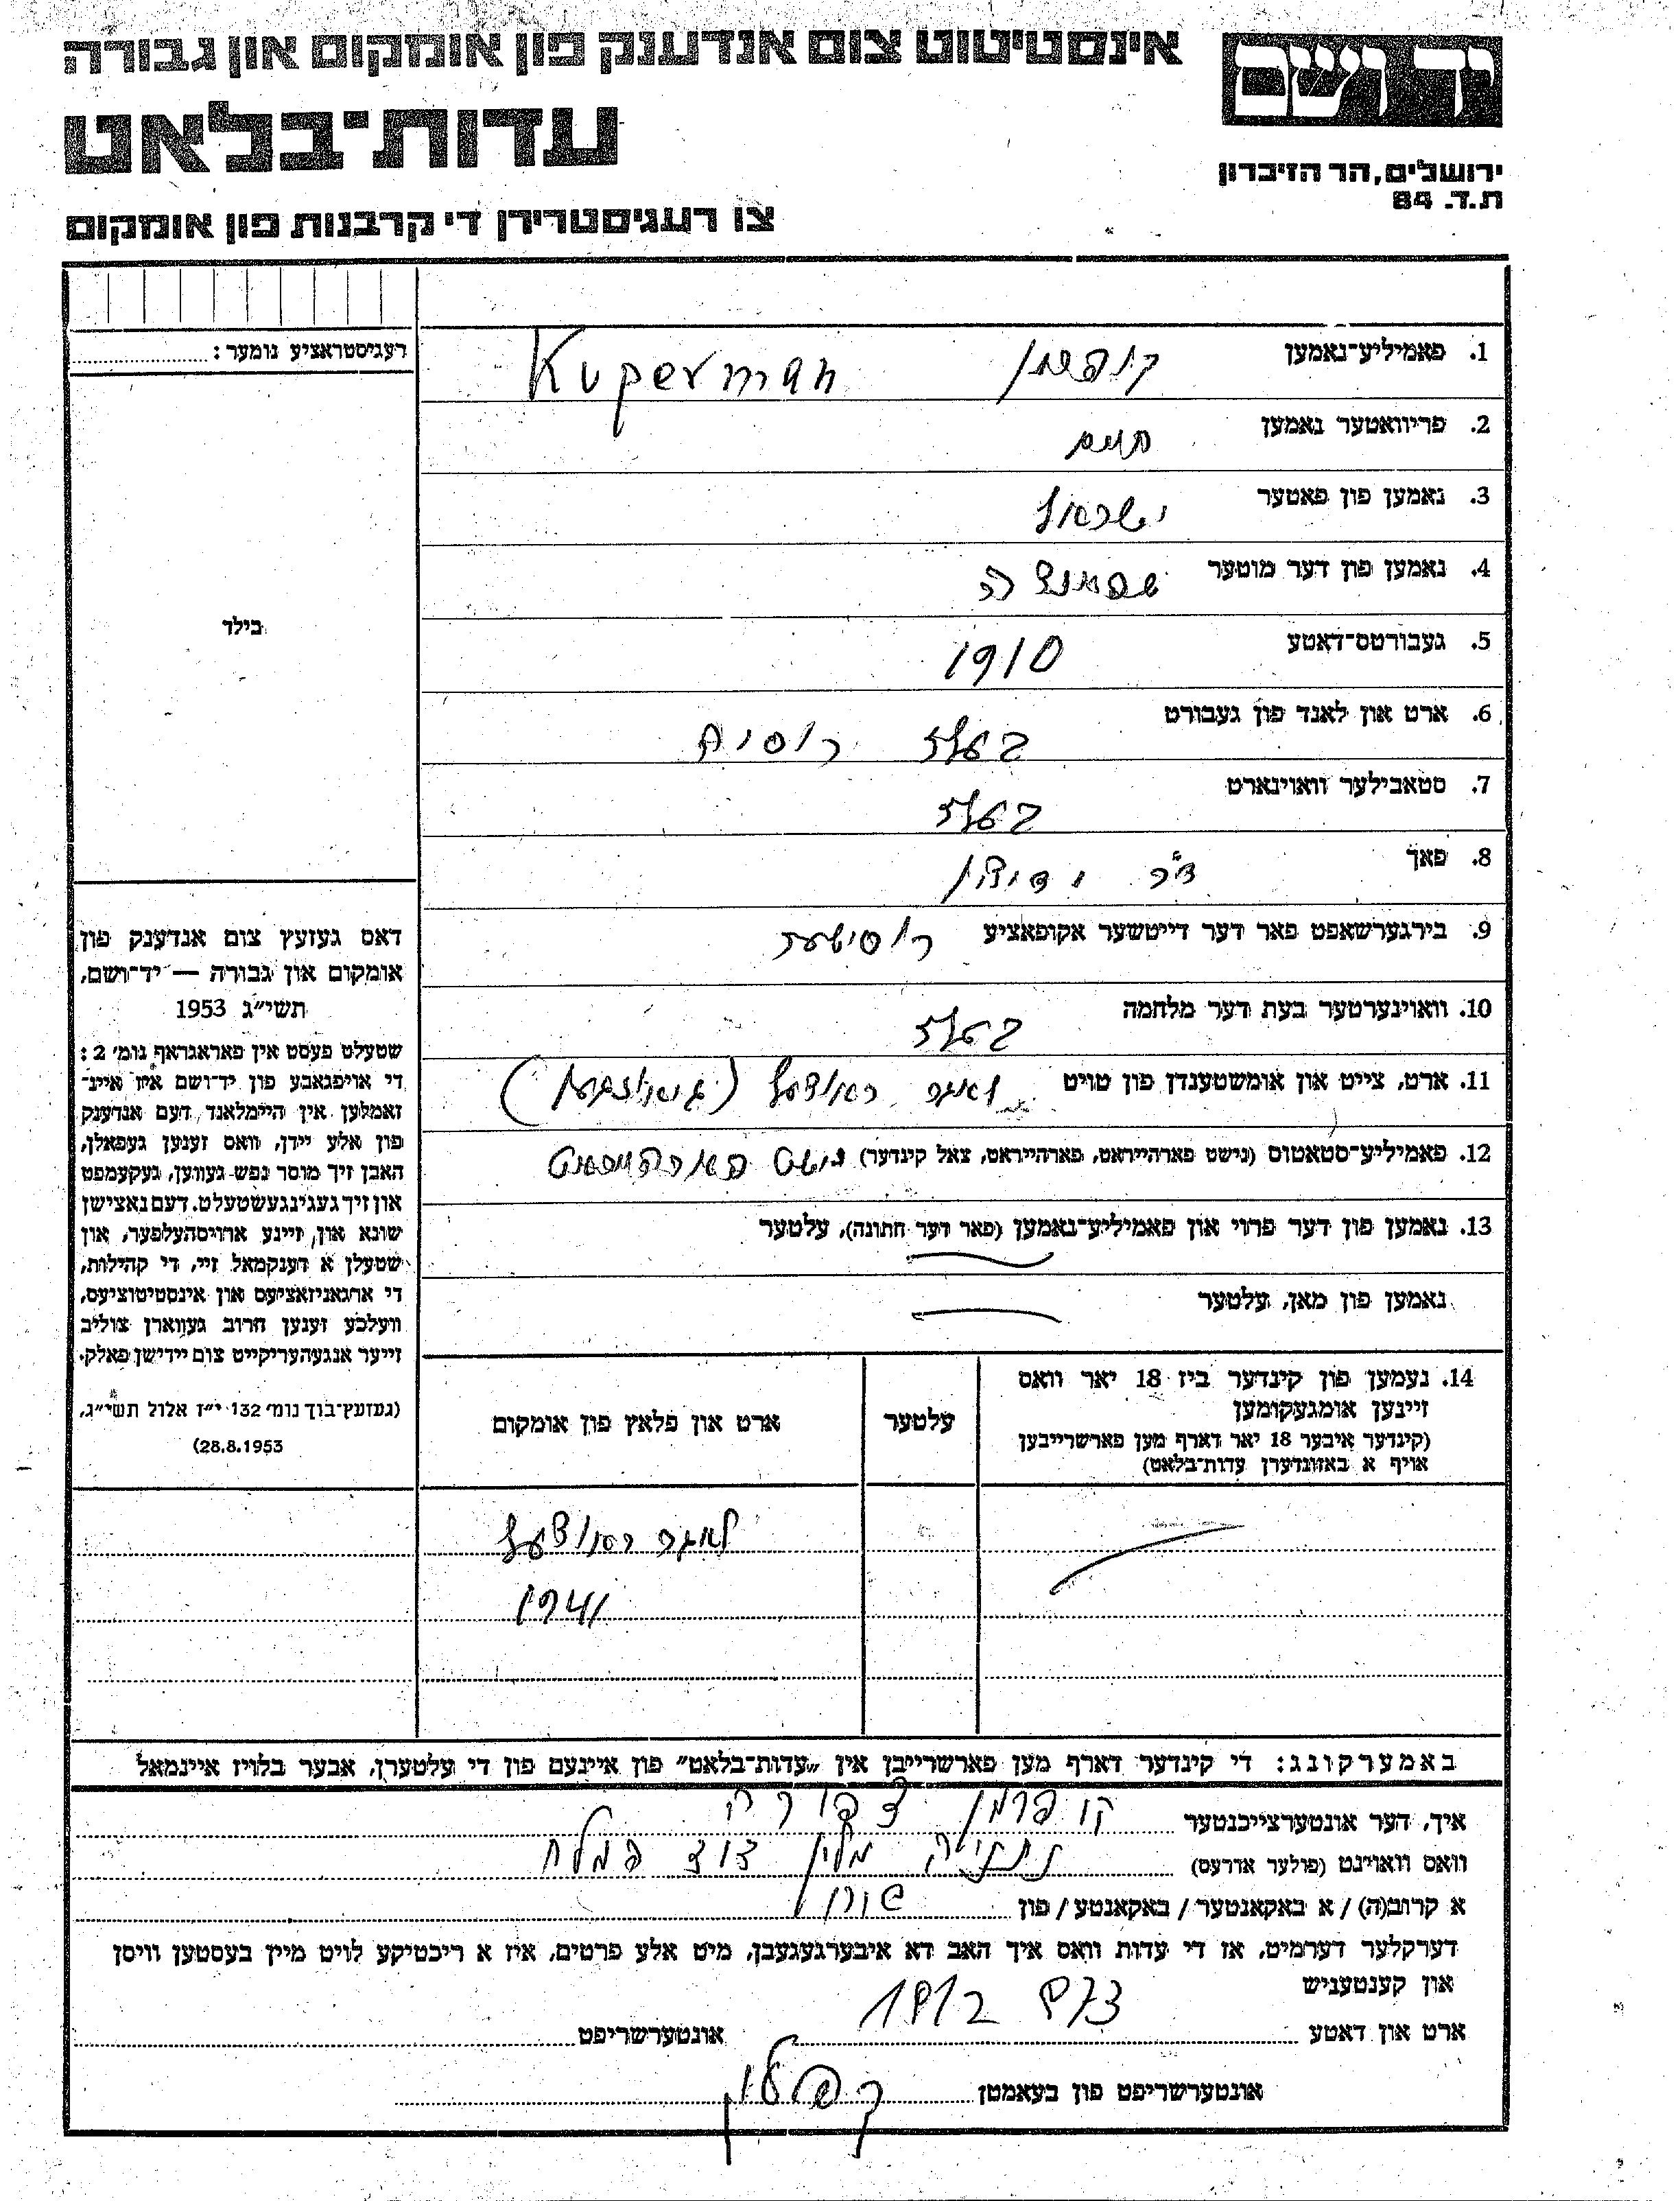 יד ושם
אינסטיטוט צום אנדענק פון אומקום און גבורה
עדות-בלאט
ירושלים, הר הזיכרון
ת.ד. 84
צו רעגיסטרירן די קרבנות פון אומקום
רעגיסטראציע נומער:
בילד
1. פאמיליע-נאמען קופערמן Kuperman
2. פריוואטער נאמען חיים
3. נאמען פון פאטער ישראל
4. נאמען פון דער מוטער
5. געבורטס-דאטע 1910
6. ארט און לאנד פון געבורט בעלץ רוסיה
7. סטאבילער וואוינארט בעלץ
8. פאך
9. בירגערשאפט פאר דער דייטשער אקופאציע
10. וואוינערטער בעת דער מלחמה בעלץ
11. ארט, צייט און אומשטענדן פון טויט לאגער
12. פאמיליע-סטאטוס (נישט פארהייראט, פארהייראט, צאל קינדער) נישט
13. נאמען פון דער פרוי און פאמיליע-נאמען (פאר דער חתונה), עלטער
נאמען פון מאן, עלטער
14. נעמען פון קינדער ביז 18 יאר וואס
זיינען אומגעקומען
(קינדער איבער 18 יאר דארף מען פארשרייבן
אויף א באזונדערן עדות-בלאט)
עלטער
ארט און פלאץ פון אומקום
לאגער
1941
דאס געזעץ צום אנדענק פון
אומקום און גבורה — יד-ושם,
תשי״ג 1953
שטעלט פעסט אין פאראגראף נומ׳ 2:
די אויפגאבע פון יד-ושם איז איינ-
זאמלען אין היימלאנד דעם אנדענק
פון אלע יידן, וואס זענען געפאלן,
האבן זיך מוסר נפש געווען, געקעמפט
און זיך געגינגעשטעלט. דעם נאצישן
שונא און זיינע ארויסהעלפער, און
שטעלן א דענקמאל זיי, די קהילות,
די ארגאניזאציעס און אינסטיטוציעס,
וועלכע זענען חרוב געווארן צוליב
זייער אנגעהעריקייט צום יידישן פאלק.
(געזעץ-בוך נומ׳ 132 י״ז אלול תשי״ג,
28.8.1953)
באמערקונג: די קינדער דארף מען פארשרייבן אין „עדות-בלאט״ פון איינעם פון די עלטערן, אבער בלויז איינמאל
איך, דער אונטערצייכנטער קופרמן צפורה
וואס וואוינט (פולער אדרעס) נתניה מלון דוד המלך
א קרוב(ה) / א באקאנטער / באקאנטע / פון
דערקלער דערמיט, אז די עדות וואס איך האב דא איבערגעגעבן, מיט אלע פרטים, איז א ריכטיקע לויט מיין בעסטען וויסן
און קענטעניש
ארט און דאטע אונטערשריפט
אונטערשריפט פון בעאמטן